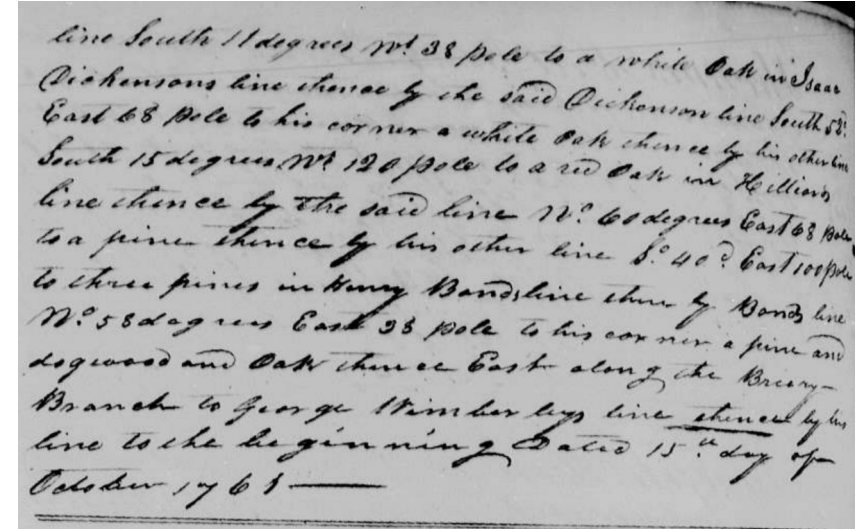 line South 11 degrees Wt. 38 pole to a white Oak in Isaac
Dickensons line thence by the said Dickenson line South 52d.
East 68 pole to his corner a white Oak thence by his other line
South 15 degrees Wt. 120 pole to a red Oak in Hilliards
line thence by the said line No. 60 degrees East 68 pole
to a pine thence by his other line So. 40d. East 100 pole
to three pines in Henry Bonds line thence by Bonds line
No. 58 degrees East 38 pole to his corner a pine and
dogwood and Oak thence East along the Briery
Branch to George Wimberleys line thence by his
line to the beginning Dated 15th. day of
October 1761